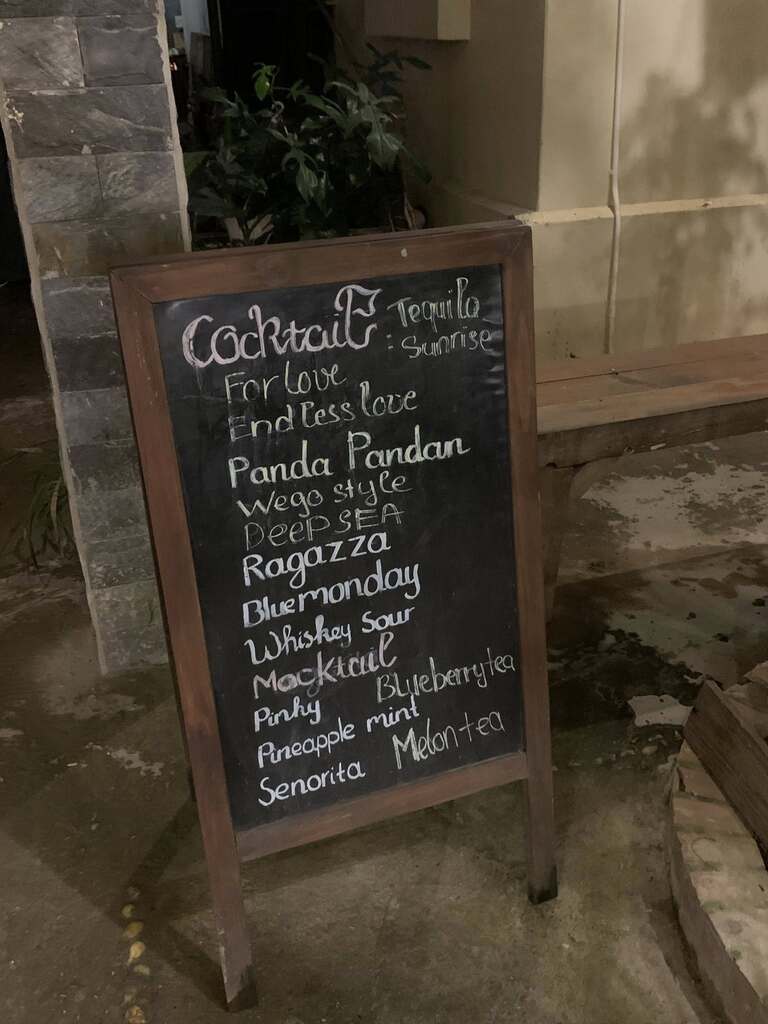 Cocktail
Tequila
: Sunrise
For Love
Endless love
Panda Pandan
Wego style
DEEP SEA
Ragazza
Bluemonday
Whiskey Sour
Mocktail
Pinky
Blueberry tea
Pineapple mint
Senorita
Melon tea